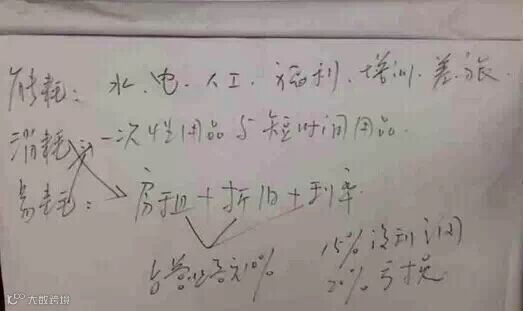 能耗：水、电、人工、福利、培训、差旅.
消耗：一次性用品与短时间用品.
易耗：房租+折旧+利率.
占营业总元10%
15%没利润
20%亏损
大数跨境